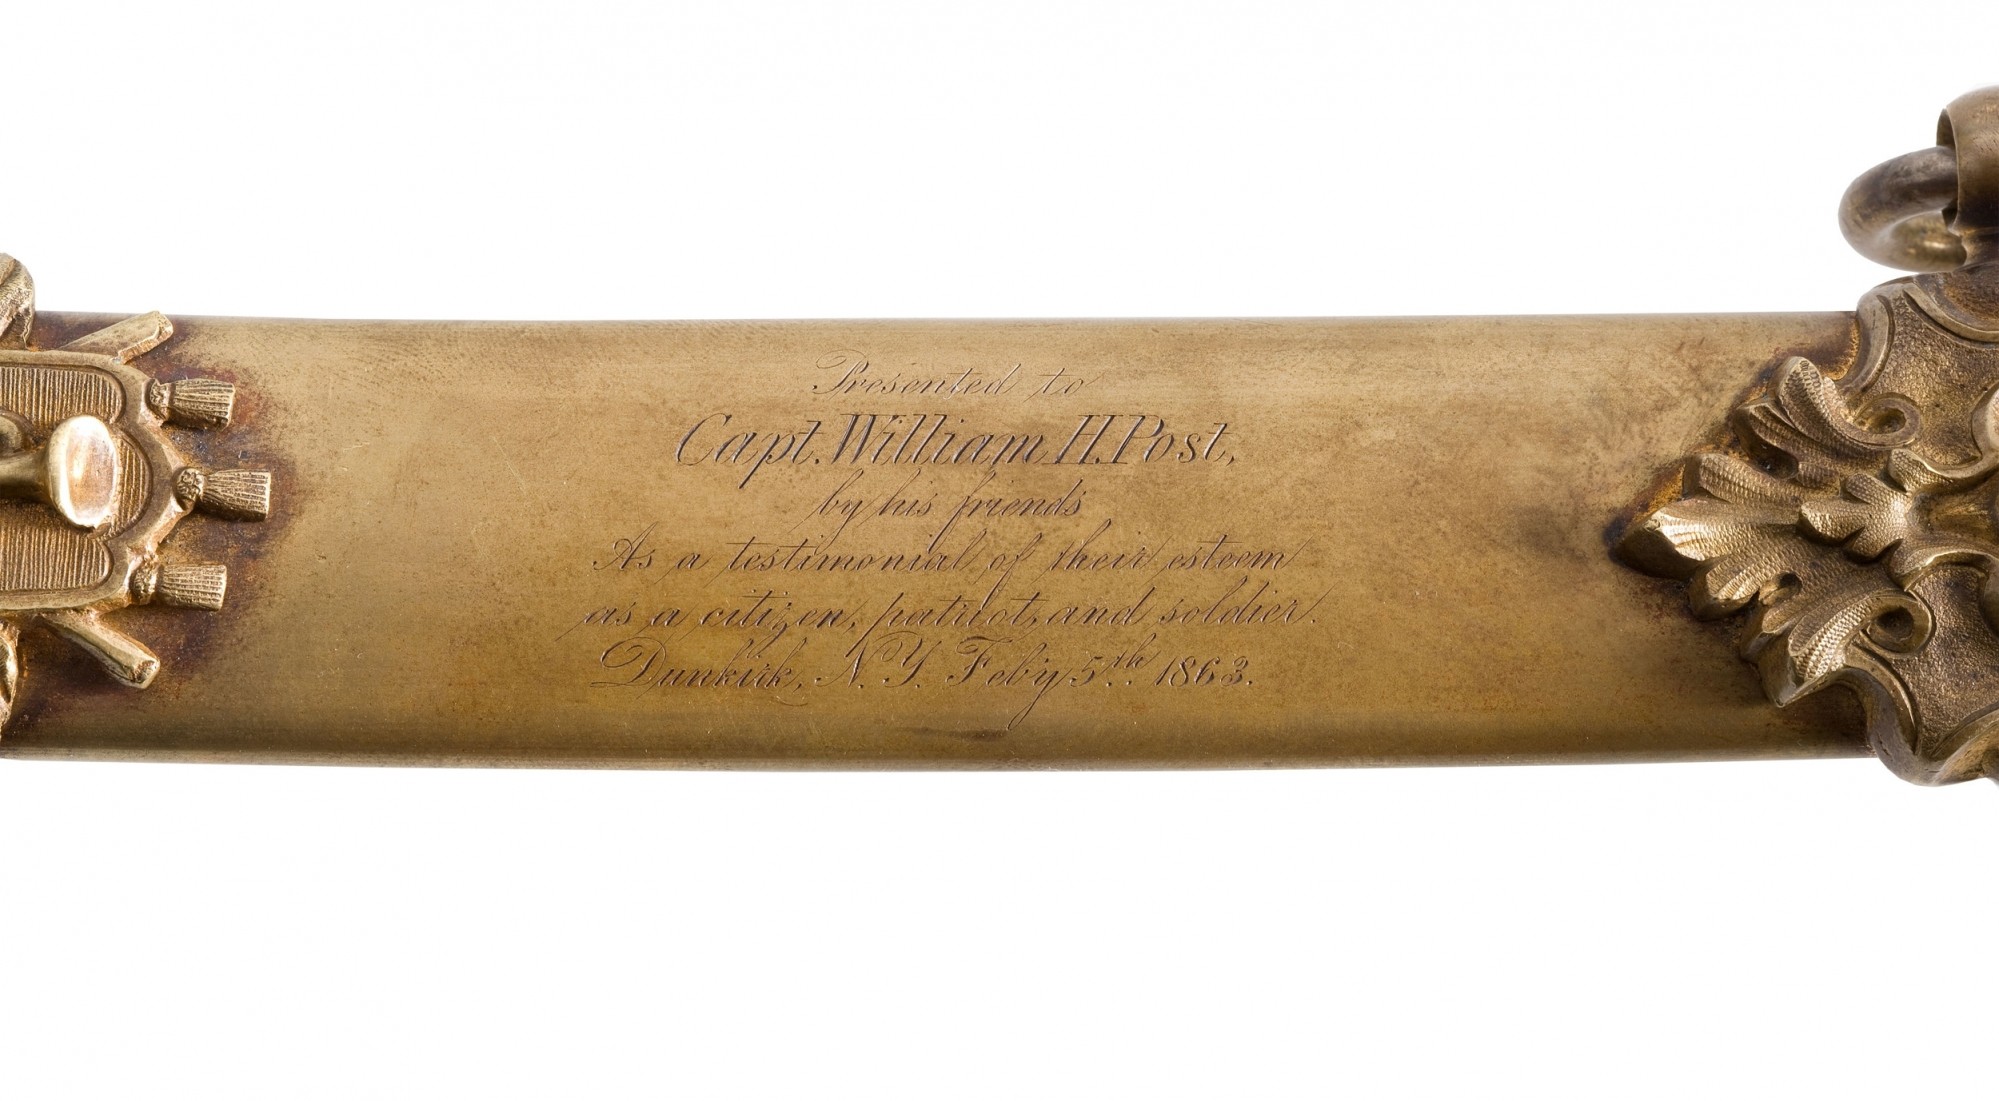 Presented to
Capt. William H. Post,
by his friends
As a testimonial of their esteem
as a citizen, patriot, and soldier.
Dunkirk, N. Y. Feb'y 5th 1863.